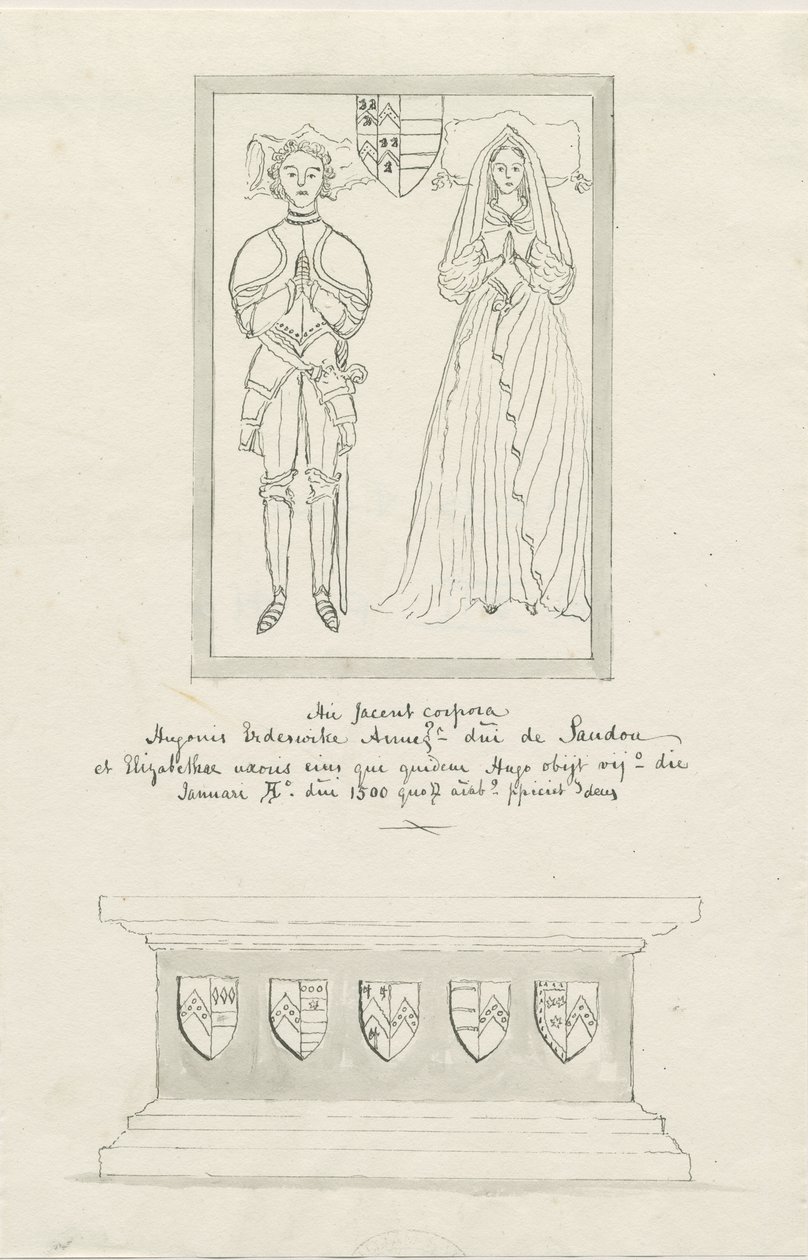 Hic Jacent corpora
Hugonis Erdeswike Armeg^r dñi de Sandon
et Elizabethae uxoris eius qui quidem Hugo obijt vij^o die
Januari A^o. dñi 1500 quoꝝ aiab^9 ppiciet^9 deus